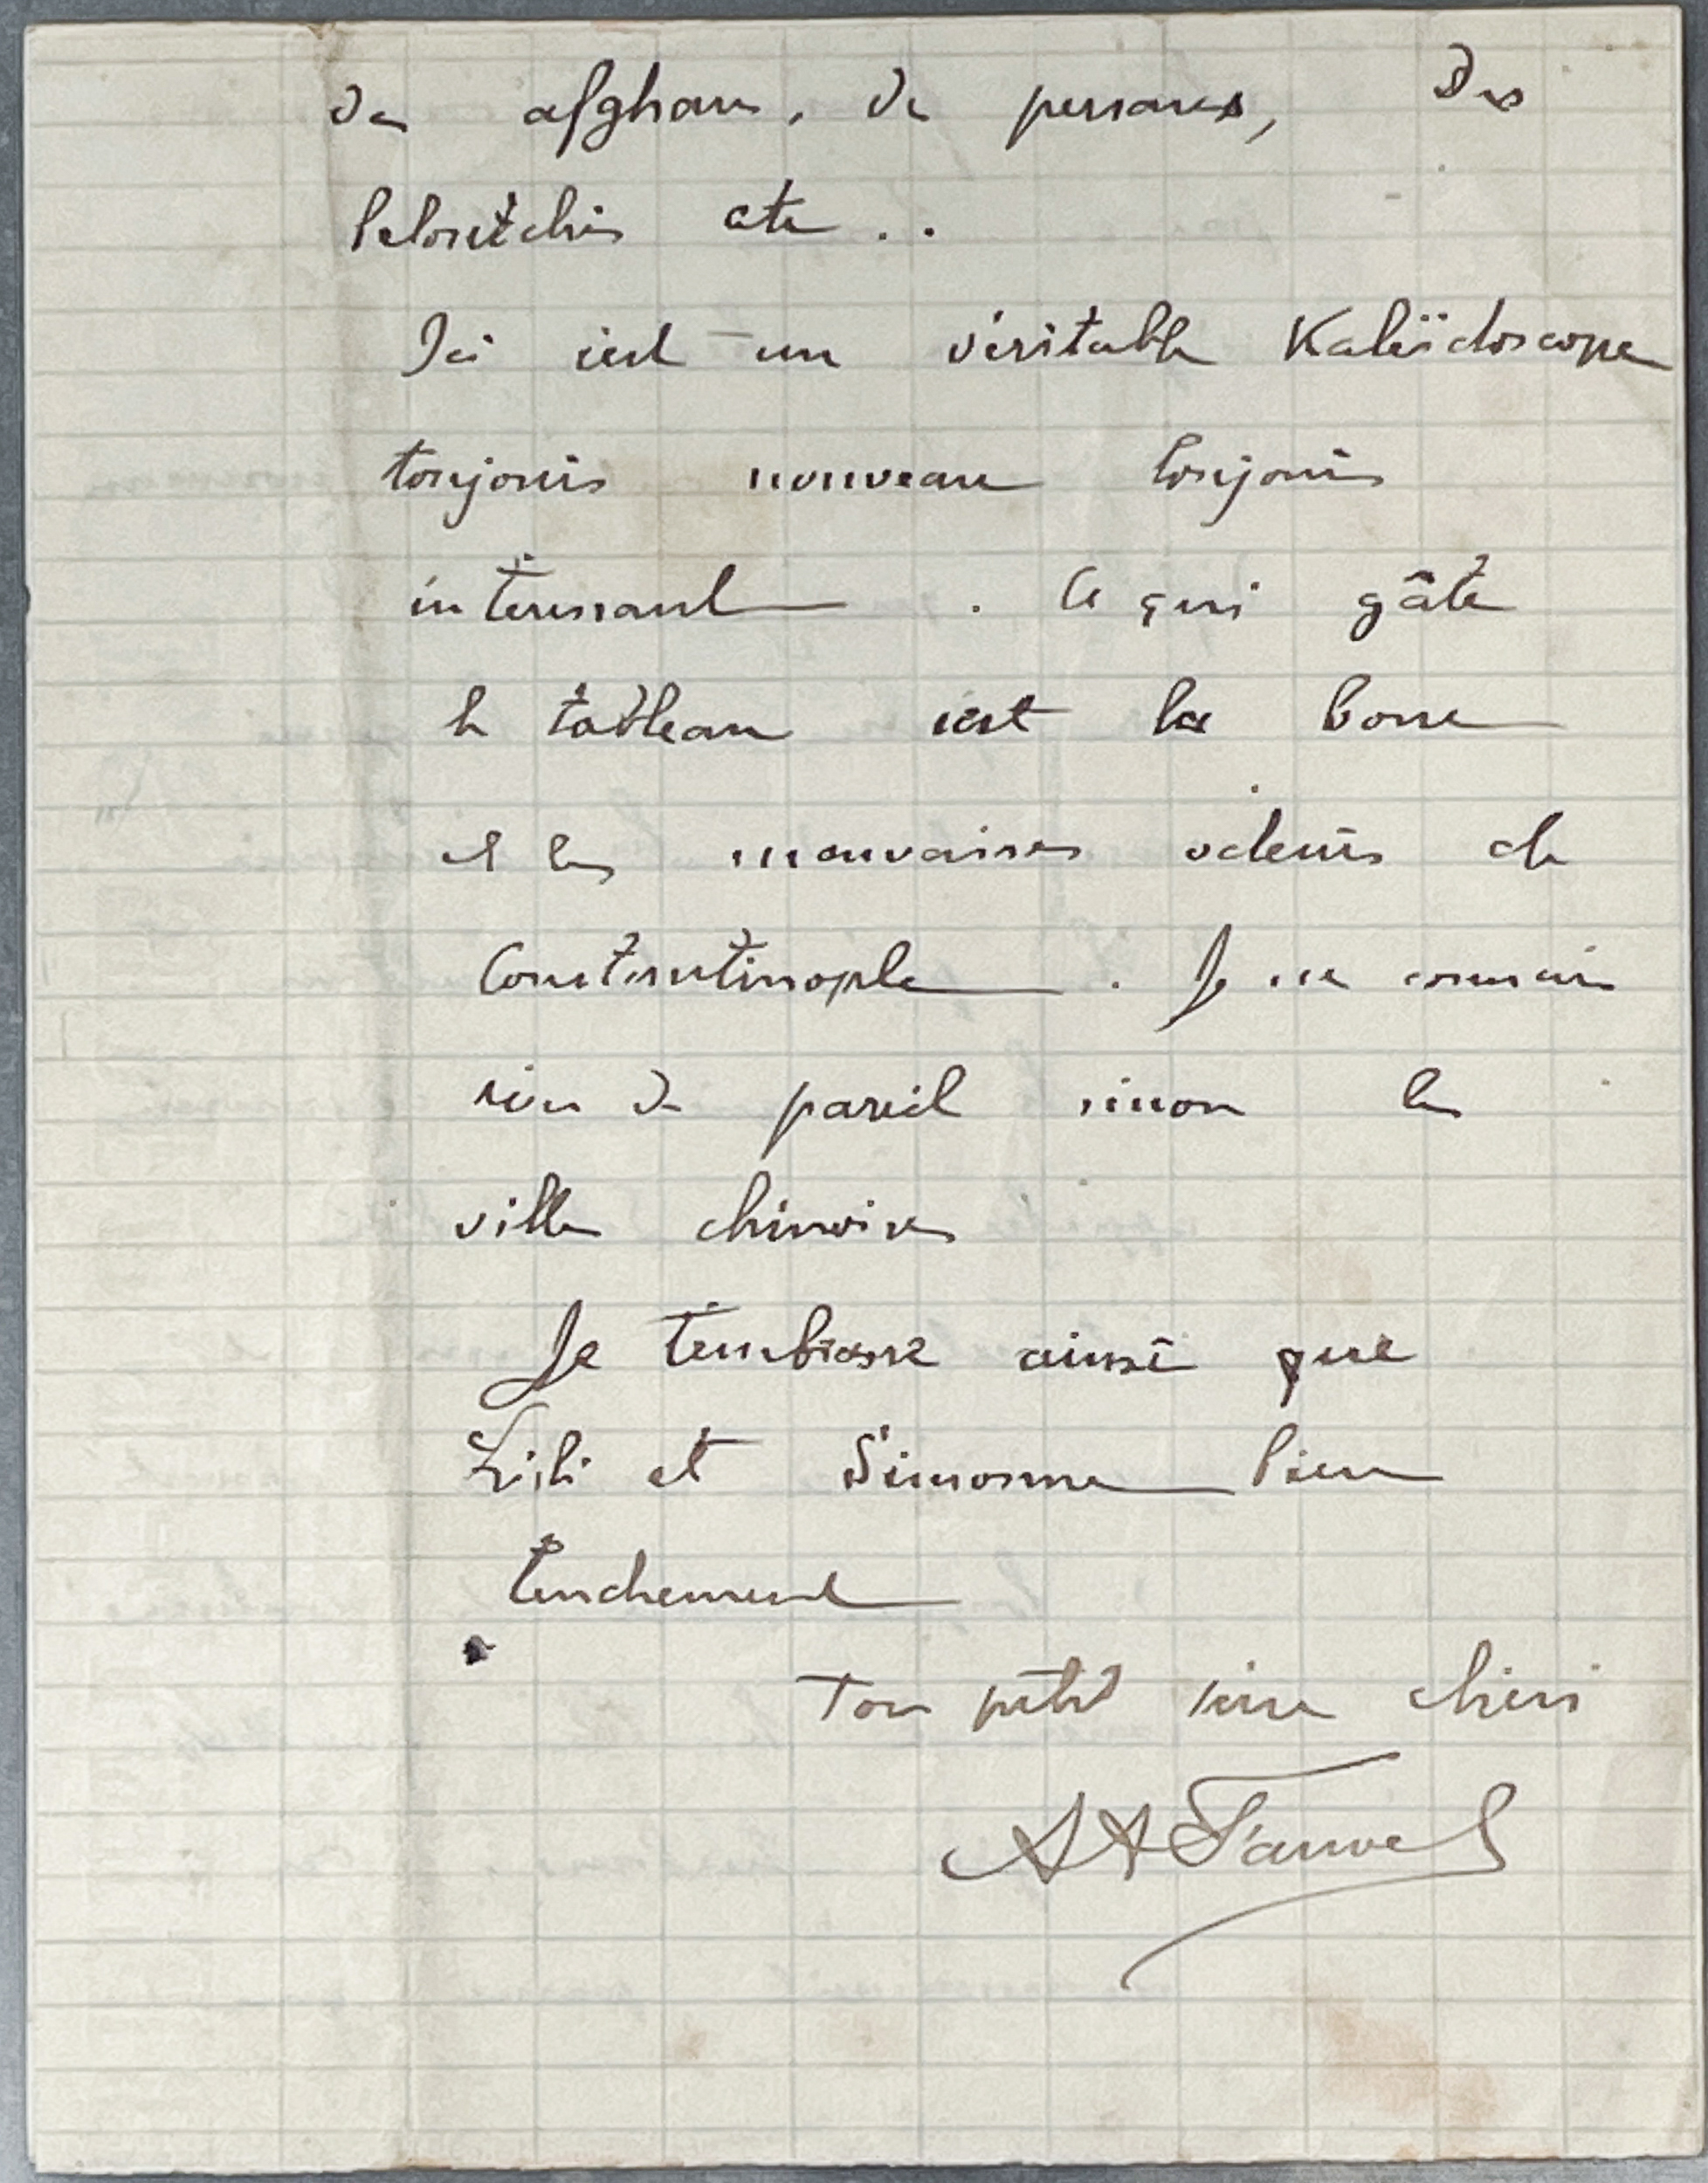 des afghans, des persans, des
beloutchis etc ..
Ici c'est un véritable Kaléidoscope
toujours nouveau toujours
intéressant . Ce qui gâte
le tableau c'est la boue
et les mauvaises odeurs de
Constantinople . Je ne connais
rien de pareil sinon les
villes chinoises
Je t'embrasse ainsi que
Lili et Simonne bien
tendrement
Ton petit père chéri
AA Fauvel